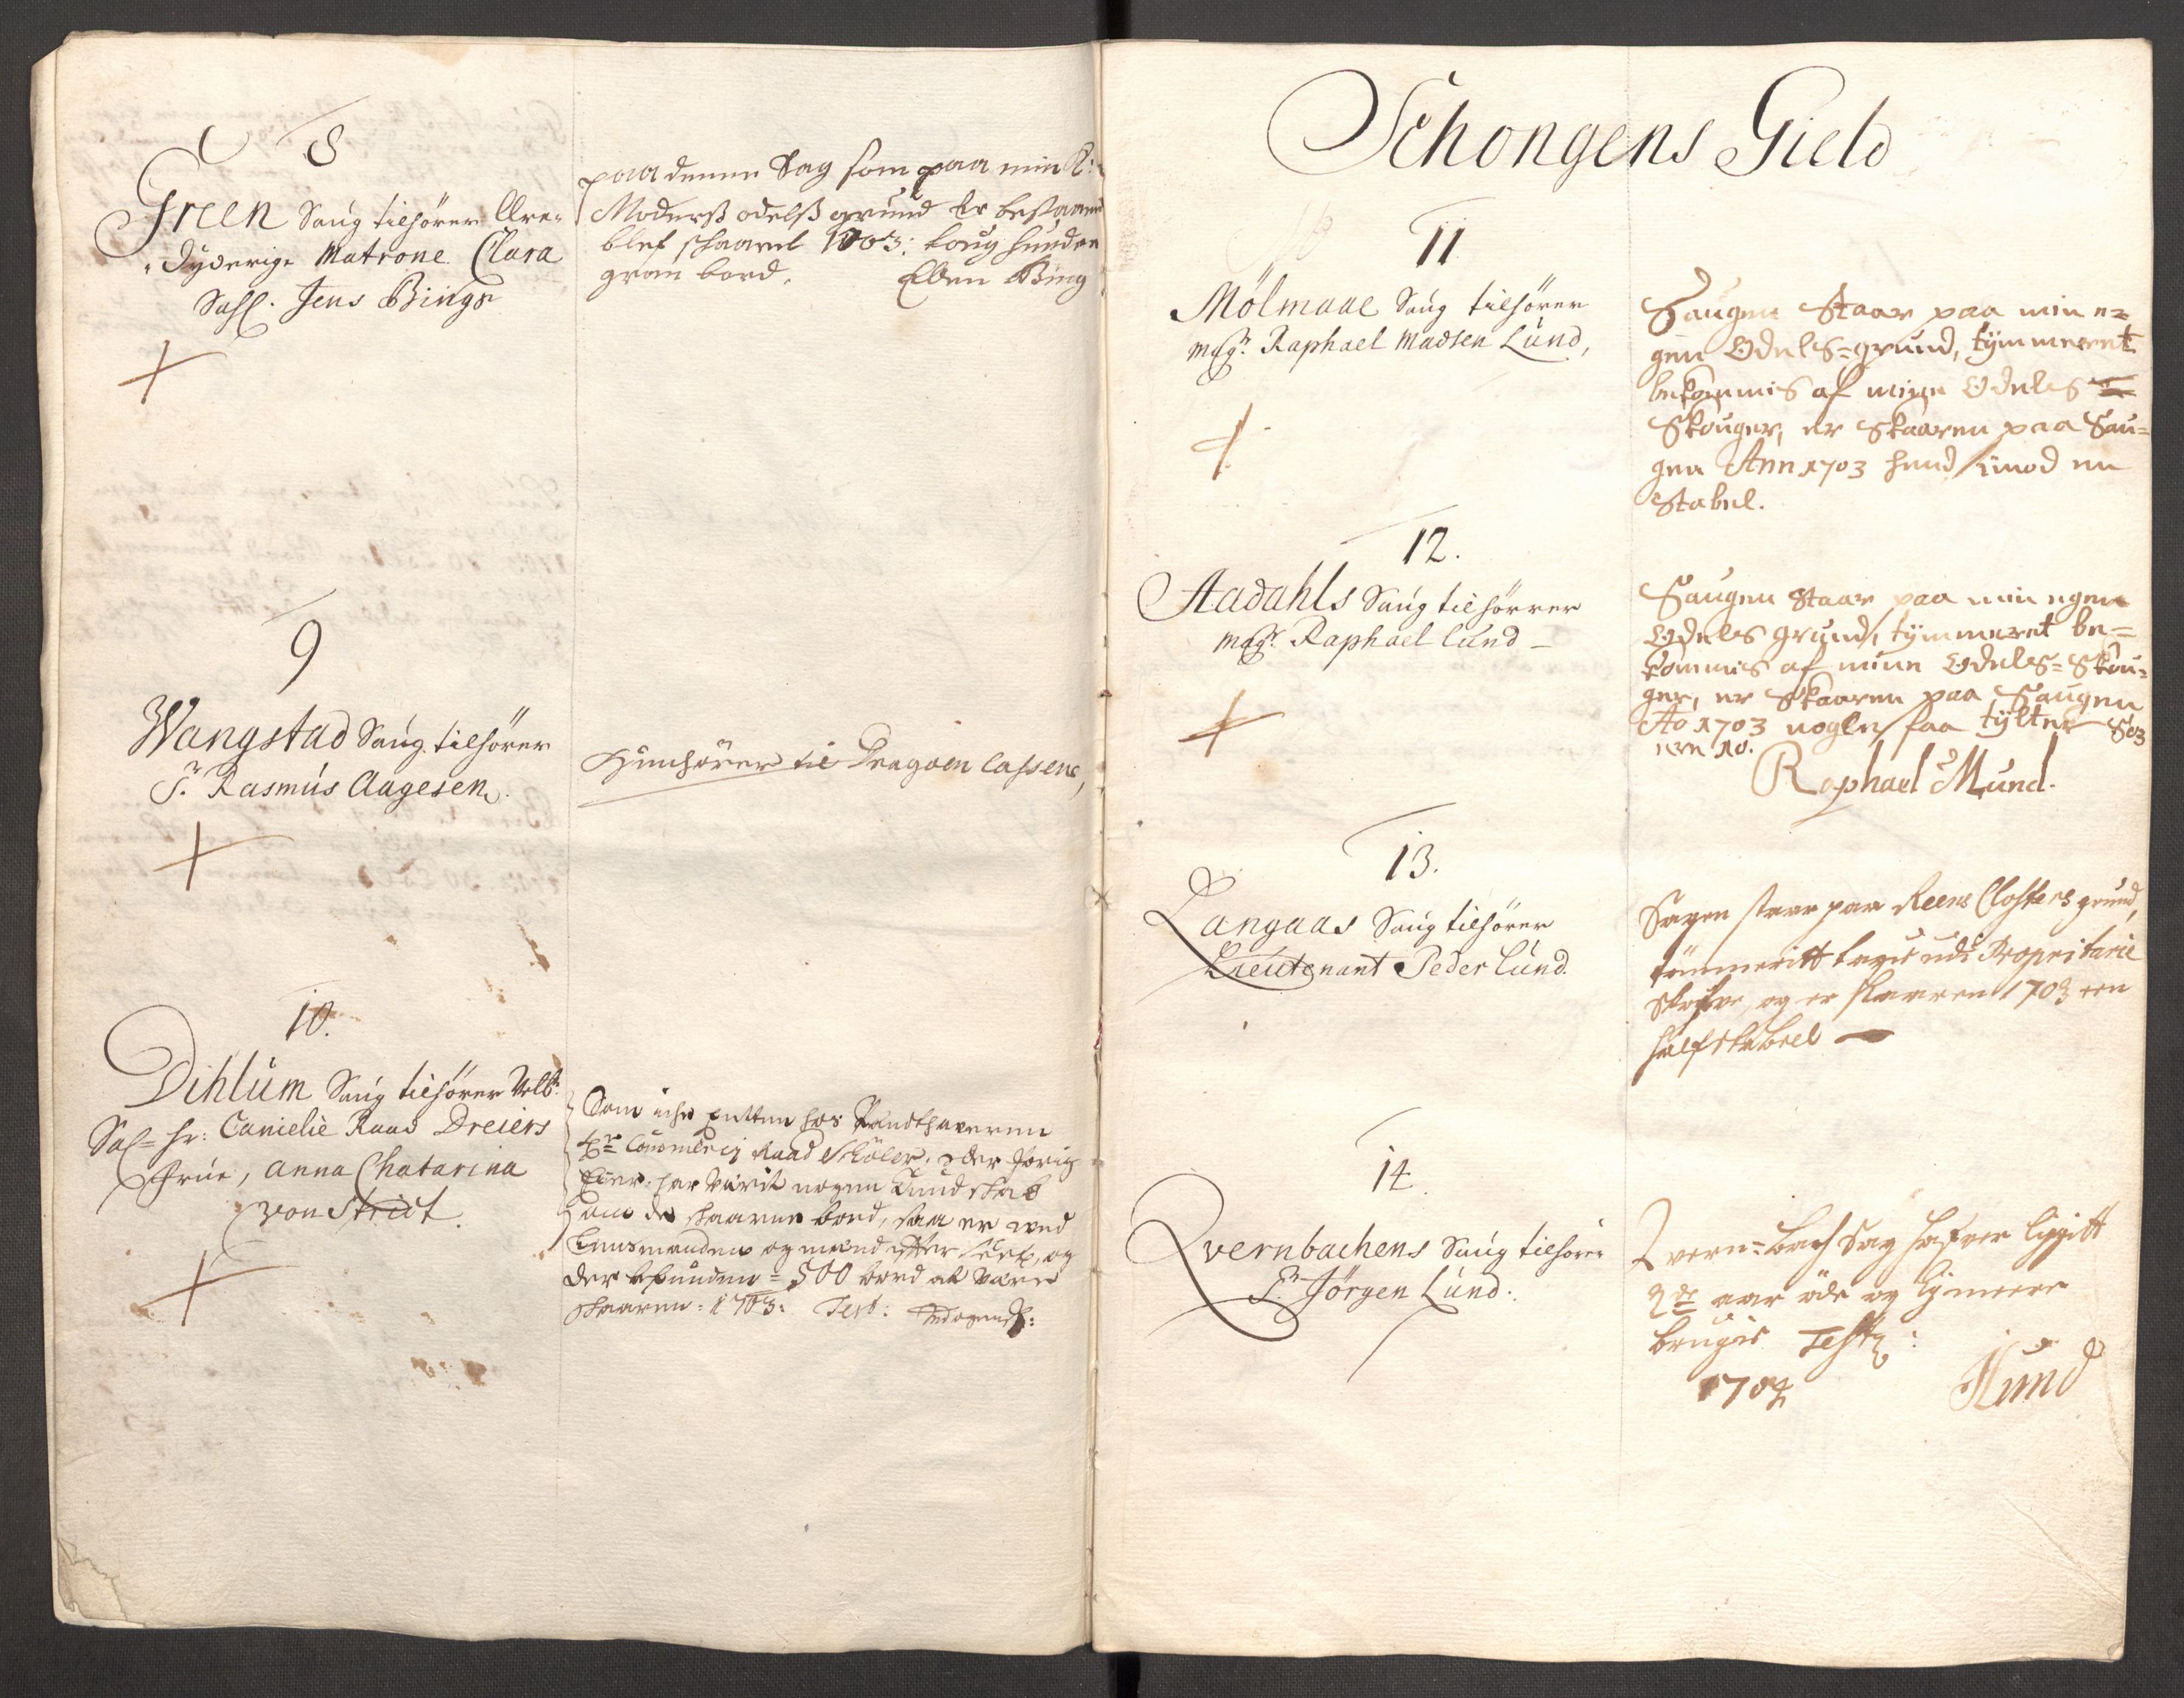 8
Green Saug tilhører Ære-
dyderige Matrone Clara
Sahl. Jens Bings
paa denne Sag som paa min S:
Moderß odelß grund er bestaaend
blef schaaret 1703: toug hunder
gran bord. Eben Bing
9
Wangstad Saug tilhører
Sr. Rasmus Aagesen.
Hennhører til Dragoen Cassene,
10.
Dihlum Saug tilhører Velb:
Sal= Hr: Cancelie Raad Dreiers
Frue, Anna Chatarina
von Stricht.
Som iche hos Pandthaveren
Hr Commerci Raad Schöler, eller forig
Eier har värit nogen Kundskab
om de skaarne bord, saa er ved
Lensmanden og mænd efter seet, og
der befunden = 500 bord at være
skaaren = 1703: Test:
Schongens Gield
11
Mölmaae Saug tilhører
Magr. Raphael Madsen Lund,
Saugen Staar paa min e=
gen Odels=grund, tÿmmeret
bekommis af mine Odels
Skouger, er Skaaren paa Sau=
gen Ann 1703 hend imod en
Stabel.
12.
Aadahls Saug tilhörrer
Magr. Raphael Lund
Saugen Staar paa min egen
Odels grund, tÿmmeret be=
kommis af mine Odels=Skou=
ger, er Skaaren paa Saugen
Ao 1703 nogle faa tÿlter
Raphael MLund.
13.
Langaas Saug tilhører
Lieutenant Peder Lund.
Sagen staar paa Reens Closters grund,
tömmeritt tagis udi Propritarie
skofve, og er skaaren 1703 een
half stabel
14
Qvernbachens Saug tilhører
Sr. Jörgen Lund.
Qvern=bach Sag hafver liggitt
2de aar öde og ej meere
brugis Test:
1704 JLund